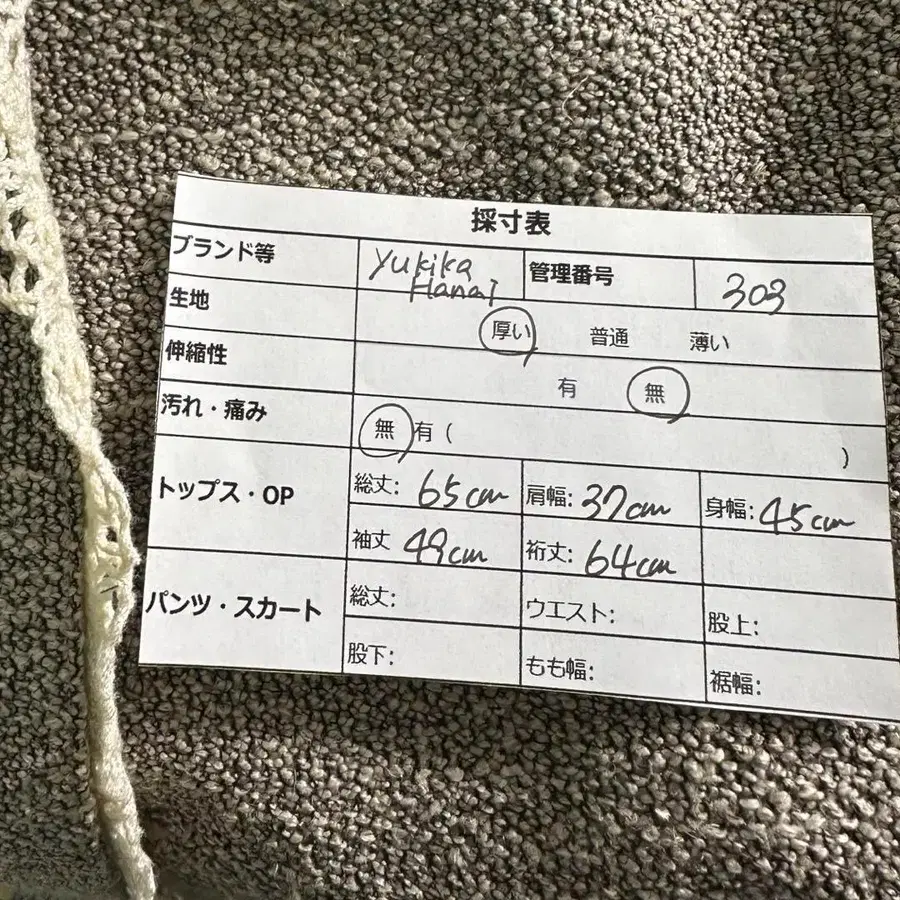 採寸表
ブランド等 Yukika Hanai 管理番号 303
生地 厚い 普通 薄い
伸縮性 有 無
汚れ・痛み 無 有 ( )
トップス・OP 総丈: 65cm 肩幅: 37cm 身幅: 45cm
袖丈 49cm 裄丈: 64cm
パンツ・スカート 総丈: ウエスト: 股上:
股下: もも幅: 裾幅: